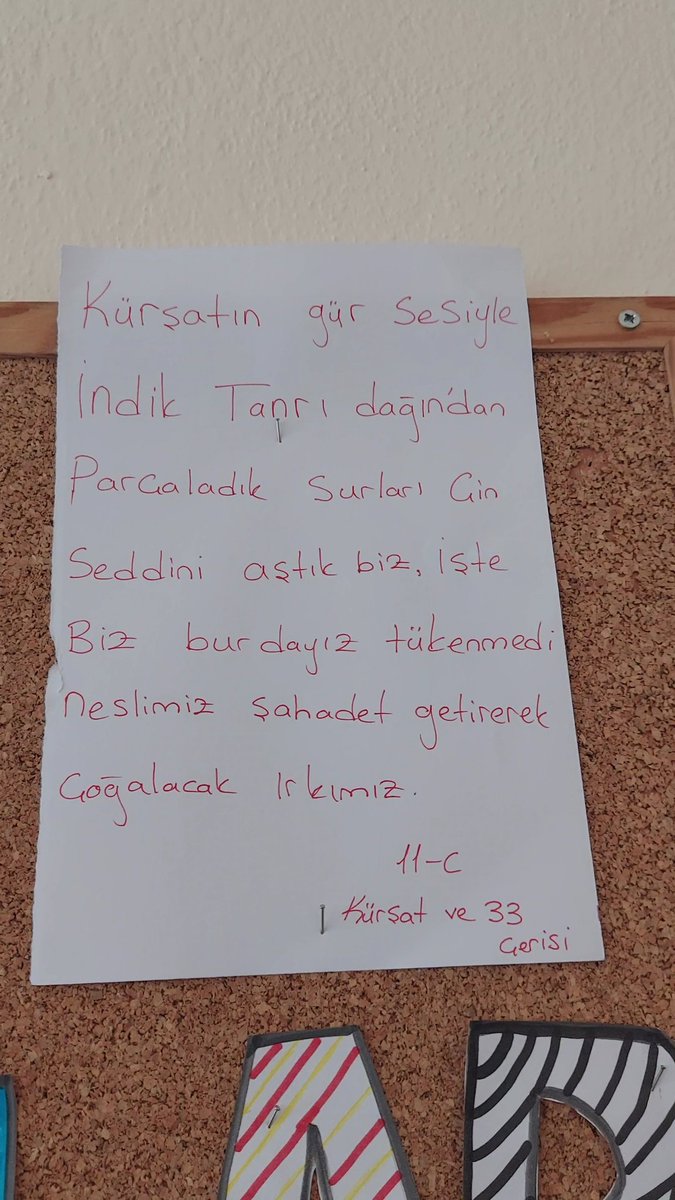 Kürşatın gür sesiyle
İndik Tanrı dağın'dan
Parçaladık surları Çin
Seddini aştık biz, işte
Biz burdayız tükenmedi
neslimiz şahadet getirerek
çoğalacak ırkımız.
11-C
Kürşat ve 33
Çerisi